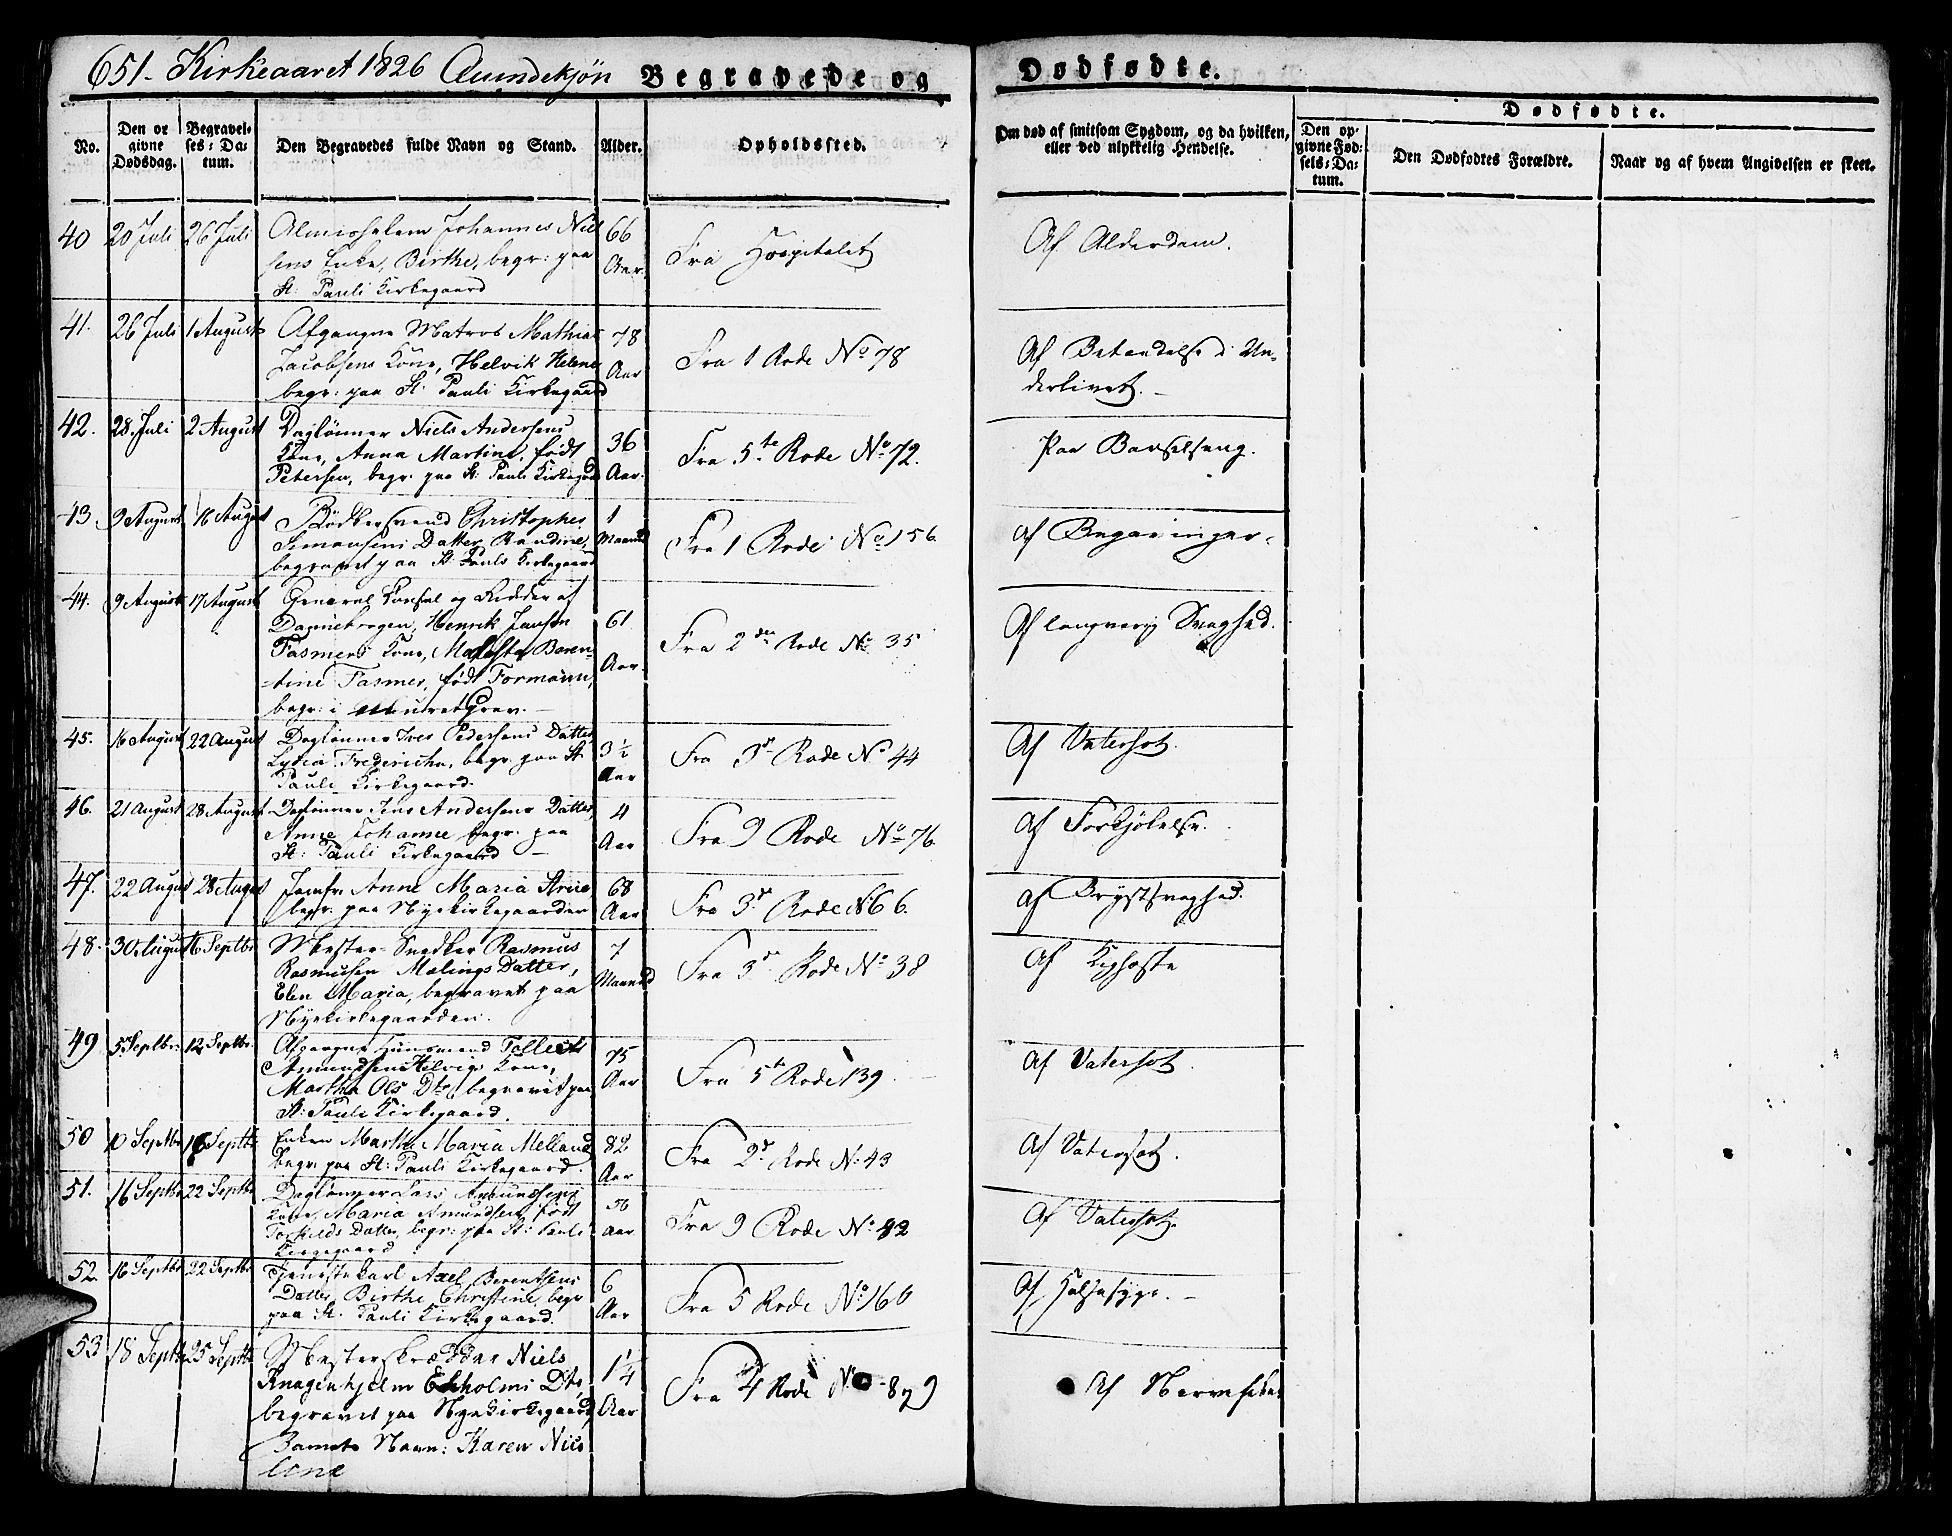 651. Kirkeaaret 1826 Qvindekjøn Begravede og Dødfødte.
No.
Den opgivne Dødsdag.
Begravelses-Datum.
Den Begravedes fulde Navn og Stand.
Alder.
Opholdssted.
Om død af smitsom Sygdom, og da hvilken, eller ved ulykkelig Hendelse.
Dødfødte.
Den opgivne Fødsels-Datum.
Den Dødfødtes Forældre.
Naar og af hvem Angivelsen er skeet.
40 20 Juli 26 Juli Almislalem Johannes Niel 66
sens Enke, Birthe, begr: paa Aar. Fra Hospitalet Af Alderdom.
St: Pauli Kirkegaard
41. 26 Juli 1 August Afgangne Matros Mathias 78
Jacobsens Kone, Helvik Helene Aar Fra 1 Rode No 78 Af Betændelse i Un-
begr: paa St. Pauli Kirkegaard derlivet.
42. 28. Juli 2 August Daglønner Niels Andersens 36
Kone, Anna Martine, født Fra 5te Rode No 72. Paa Barselseng.
Petersen, begr. paa St: Pauli Kirkegaad Aar.
43. 9 August 16 August Bødkersvend Christopher 1
Simonsens Datter, Randine, Maaned Fra 1 Rode No 156. Af
begravet paa St: Pauls Kirkegaard
44. 9 August 17 August General Konsul og Ridder af
Dannebrogen, Henrik Jansen 61.
Fasmers Kone, Baren- Aar. Fra 2den Rode No 35 Af langvarig Svaghed.
tine Fasmer, født Formann,
begr: i muret Grav.
45. 16 August 22 August Daglønner Ives Pedersens Datter 3 1/2
Lydia Fredericha, begr. paa St. Aar Fra 3de Rode No 44 Af Vatersot.
Pauli Kirkegaard.
46. 21 August 28 August Daglønner Jens Andersens Datter, 4
Anne Johanne begr. paa Aar Fra 9 Rode No 76. Af Forkjølelse.
St: Pauli Kirkegaard
47. 22 August 28 August Jomfr. Anne Maria 68
begr. paa Nyekirkegaarden Aar Fra 3de Rode No 66. Af Brystsvaghed.
48. 30 August 6 Septbr Mester-Snedker Rasmus 7
Rasmusen Mælings Datter, Maaned Fra 3de Rode No 38 Af Kighoste
Elen Maria, begravet paa
Nyekirkegaarden.
49 5 Septbr: 12 Septbr: Afgangne Huusmand Tollect 75
Amundsen Helvigs Kone, Aar Fra 5te Rode 139. Af Vatersot.
Martha Ols Dtr, begravet paa
St: Pauli Kirkegaard.
50 10 Septbr 16 Septbr Enken Marthe Maria Melland 82
begr. paa St: Pauli Kirkegaard. Aar Fra 2de Rode No: 43 Af Vatersot.
51. 16 Septbr 22 Septbr Daglønner Lars Amundsens 56
Kone, Maria Amundsen, født Aar Fra 9 Rode No: 42 Af Vatersot.
Torkilds Datter, begr: paa St: Pauli
Kirkegaard
52. 16 Septbr 22 Septbr Tjenestekarl Axel Berentsens 6
Datter, Birthe Christine, begr Aar Fra 5 Rode No 160 Af Halssyge.
paa St. Pauli Kirkegaard.
53 18 Septbr 25 Septbr Mesterskrædder Niels 1 1/4
Knagenhjelm Ekholms Dtr, Aar Fra 4 Rode No 879 Af
begravet paa Nyekirkegaard
Barnets Navn: Karen Nico
line